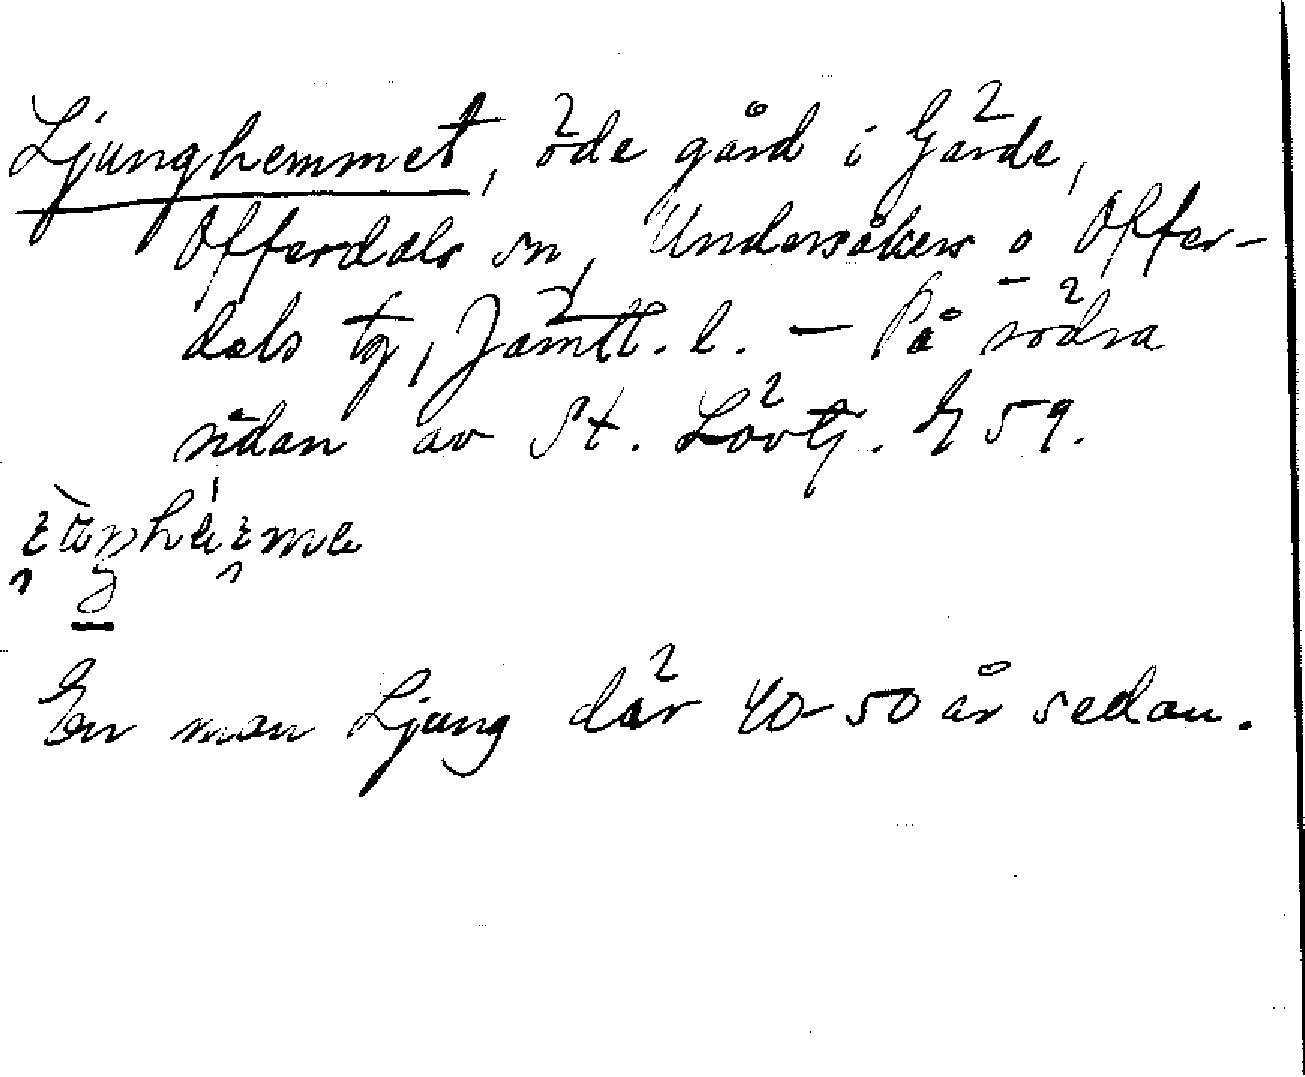 Ljunghemmet, öde gård i Gärde,
Offerdals sn, Undersåkers o Offer-
dals tg, Jämtl. l. — På södra
sidan av St. Lövtj. E 59.
En man Ljung där 40-50 år sedan.